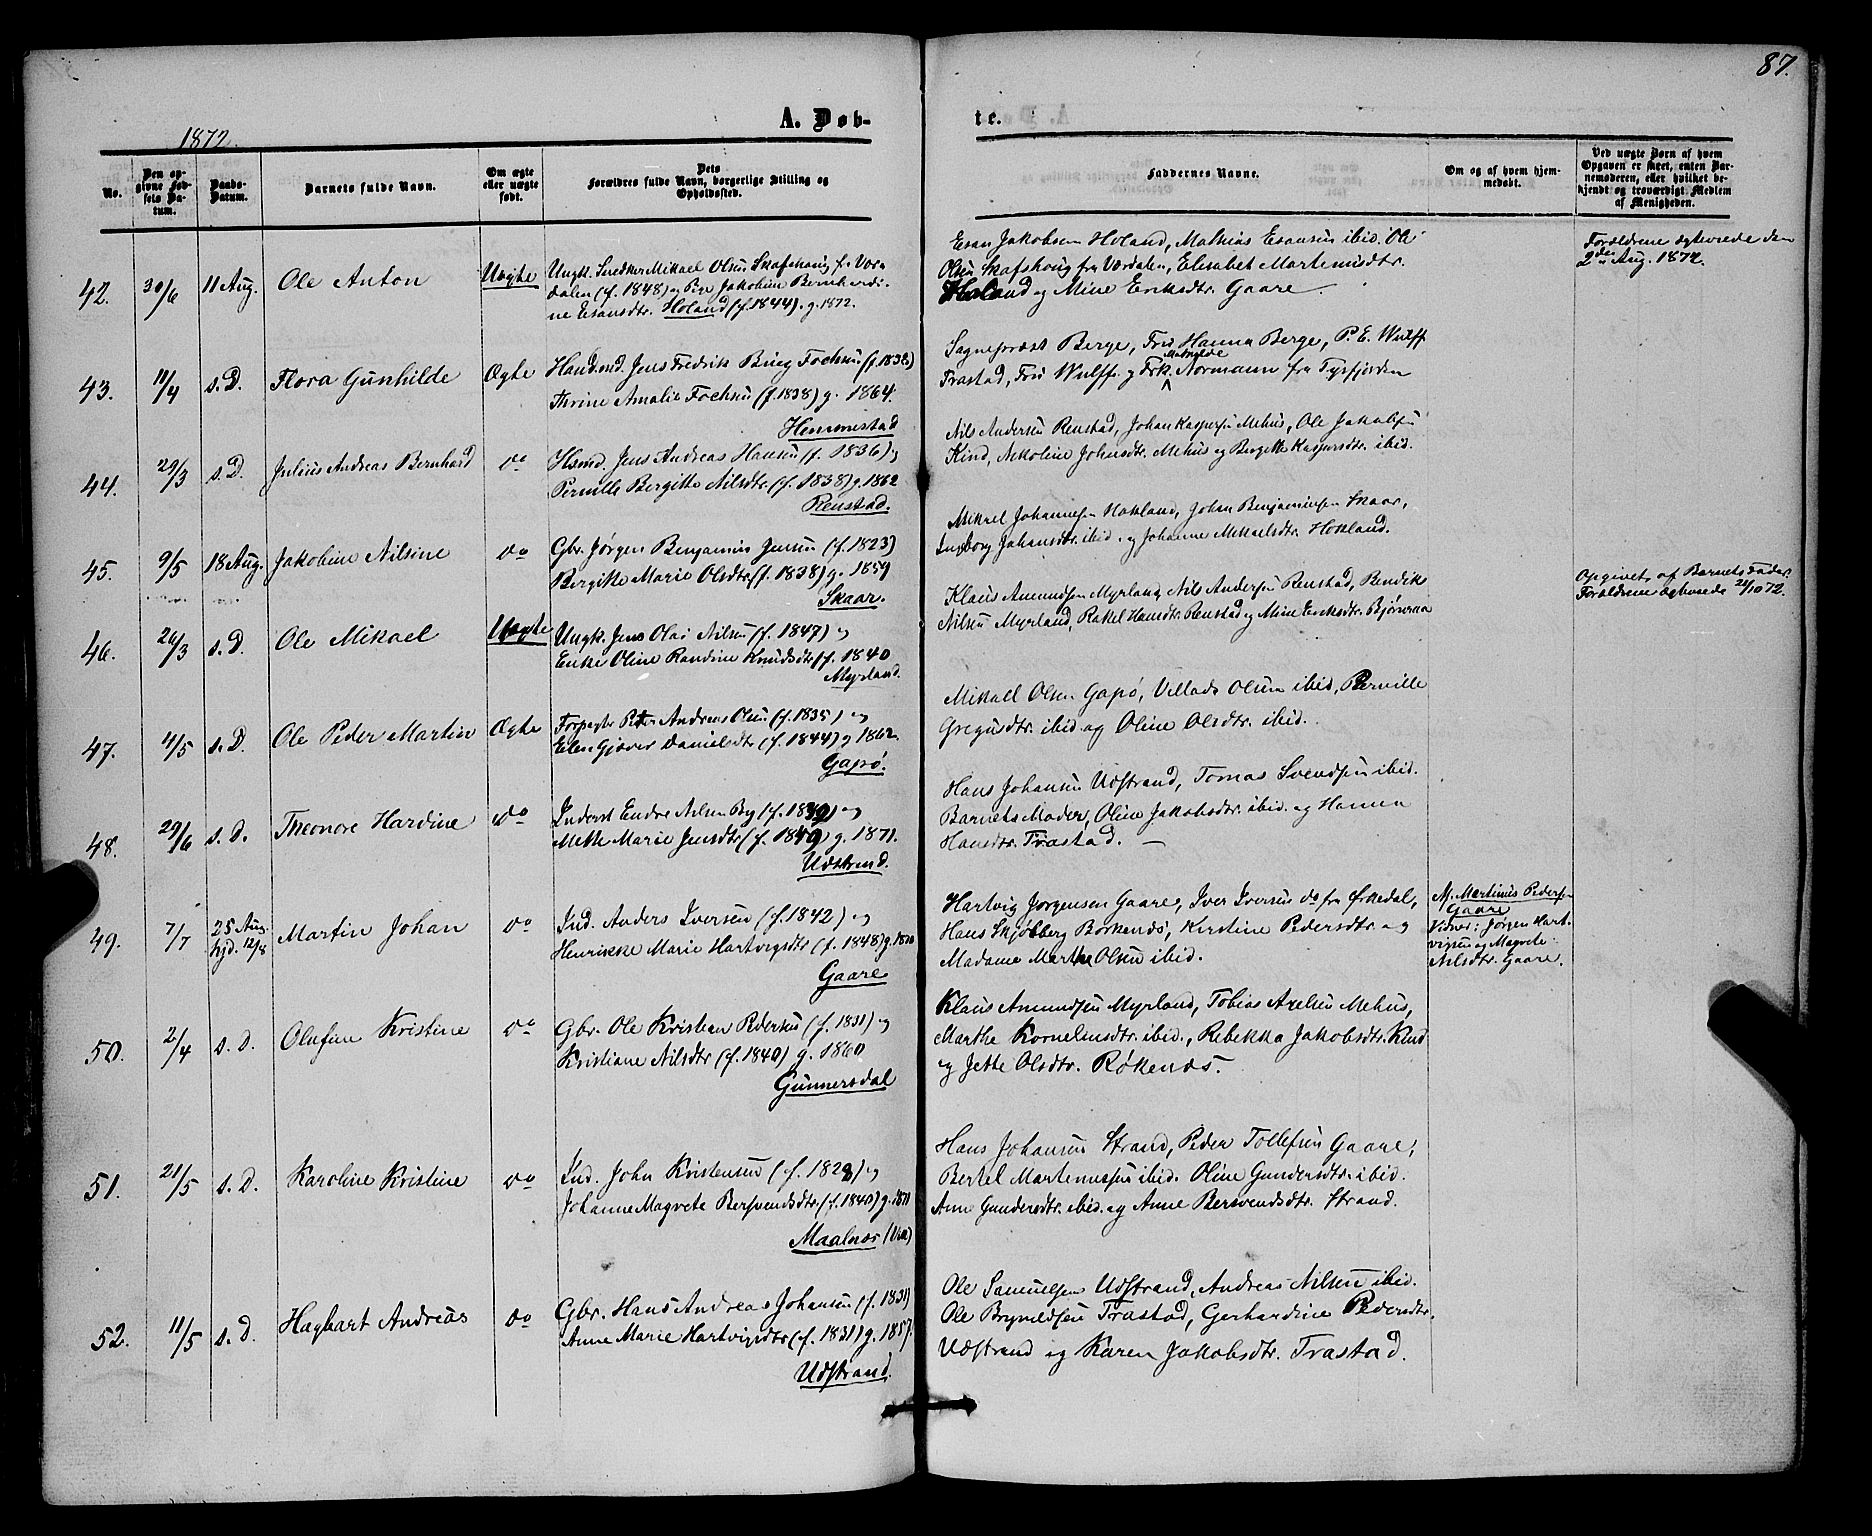 87.
A. Døb-
te.
1872.
No.
Den op-
givne Fød-
sels Da-
tum.
Daabs-
Datum.
Barnets fulde Navn.
Om ægte
eller uægte
født.
Dets
Forældres fulde Navn, borgerlige Stilling og
Opholdssted.
Faddernes Navne.
Om og af hvem hjem-
medøbt.
Ved uægte Børn af hvem
Opgaven er skeet, enten Bar-
nemoderen, eller hvilket be-
kjendt og troværdigt Medlem
af Menigheden.
42. 30/6 11 Aug. Ole Anton Uægte
Ungk. Snedker Mikael Olsen Skafshaug f. Vær-
dalen (f. 1848) og Pge Jakobine Bernhardi-
ne Esansdtr. Holand (f. 1844). g. 1872.
Esan Jakobsen Holand, Mathias Esansen ibid. Ole
Olsen Skafshoug fra Værdalen, Elisabet Martemisdtr.
Holand og Mine Eriksdtr. Gaare.
Forældrene ægteviede den
2den Aug. 1872.
43. 11/4 s. D. Flora Gunhilde Ægte
Handmd. Jens Fredrik Bing Fochsen (f. 1832)
Thrine Amalie Fochsen (f. 1838) g. 1864.
Hemmestad
Sogneprest Berge, Fru Hanna Berge, P. E. Wulff
Mathilde
Trastad, Fru Wulff og Frk. Normann fra Tysfjorden
44. 29/3 s. D. Julius Andreas Bernhard do
Hsmd. Jens Andreas Hansen (f. 1836) og
Pernille Bergitte Nilsdtr. (f. 1838) g. 1862
Renstad.
Nils Andersen Renstad, Johan Kaspersen Mehus, Ole Jakobsen
Kind, Nikoline Johnsdtr. Mehus og Bergitte Kaspersdtr. ibid.
45. 9/5 18 Aug. Jakobine Nilsine do
Gbr. Jørgen Benjamin Jensen (f. 1823)
Bergitte Marie Olsdtr. (f. 1838) g. 1859
Skaar.
Mikael Johannesen Hokland, Johan Benjaminsen Skaar,
Ingeborg Johansdtr. ibid. og Johanne Mikaelsdtr. Hokland.
46. 26/3 s. D. Ole Mikael Uægte
Ungk. Jens Olai Nilsen (f. 1847) og
Enke Oline Randine Knudsdtr. (f. 1840
Myrland.
Klaus Amundsen Myrland, Nils Andersen Renstad, Bendik
Nilsen Myrland, Rakel Hansdtr. Renstad og Mine Eriksdtr. Bjørnraa
Opgivet af Barnets Fader.
Forældrene ægteviede 21/10 72.
47. 4/5 s. D. Ole Peder Martin Ægte
Forpagter Peter Andreas Olsen (f. 1835) og
Elen Gjøver Danielsdtr. (f. 1844) g. 1862.
Gapø.
Mikael Olsen Gapø, Villads Olsen ibid, Pernille
Gregusdtr. ibid. og Oline Olsdtr. ibid.
48. 29/6 s. D. Theonore Hardine do
Inderst Endre Nilsen By (f. 1849) og
Mette Marie Jensdtr. (f. 1849) g. 1871.
Udstrand.
Hans Johansen Udstrand, Tomas Svendsen ibid.
Barnets Moder, Oline Jakobsdtr. ibid. og Hanna
Hansdtr. Trastad. —
49. 7/7 25 Aug.
hjd. 12/8 Martin Johan do
Ind. Anders Iversen (f. 1842) og
Henrikke Marie Hartvigsdtr. (f. 1848) g. 1870
Gaare
Hartvig Jørgensen Gaare, Iver Iversen do fra Ørkedal,
Hans Skjølberg Borkenæs, Kirstine Pedersdtr. og
Madame Marthe Olsen ibid.
Af Martinus Pedersen
Gaare
Vidner: Jørgen Hart-
vigsen og Magrete
Nilsdtr. Gaare.
50. 2/4 s. D. Olufine Kristine do
Gbr. Ole Kristian Pedersen (f. 1831) og
Kristiane Nilsdtr. (f. 1840) g. 1860
Gunnersdal
Klaus Amundsen Myrland, Tobias Axelsen Mehus,
Marthe Kornelsdtr. ibid., Rebekka Jakobsdtr. Kind
og Jette Olsdtr. Røkenæs.
51. 21/5 s. D. Karoline Kristine do
Ind. John Kristensen (f. 1828) og
Johanne Magrete Bersvendsdtr. (f. 1840) g. 1871
Maalnæs (Vik)
Hans Johansen Strand, Peder Tollefsen Gaare,
Bertel Martemussen ibid. Oline Gundersdtr. ibid.
Anne Gundersdtr. ibid. og Anne Bersvendsdtr. Strand.
52. 11/5 s. D. Hagbart Andreas do
Gbr. Hans Andreas Johansen (f. 1831)
Anne Marie Hartvigsdtr. (f. 1831) g. 1857.
Udstrand.
Ole Samuelsen Udstrand, Andreas Nilsen ibid.
Ole Brynildsen Trastad, Gerhardine Pedersdtr.
Udstrand og Karen Jakobsdtr. Trastad.